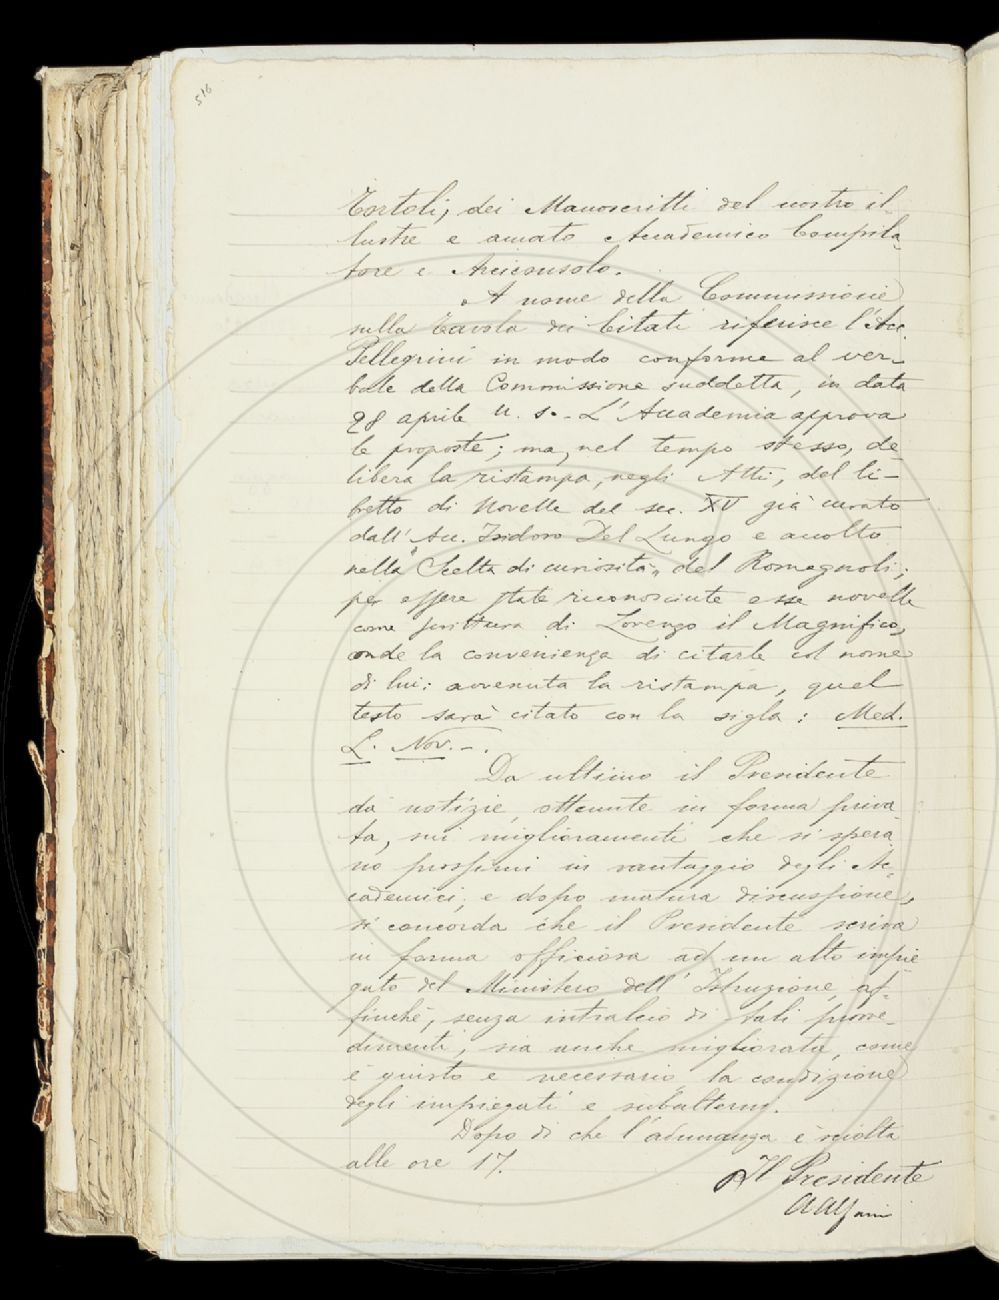 516
Tortoli, dei Manoscritti del nostro il-
lustre e amato Accademico Compila-
tore e Arciconsolo.
A nome della Commissione
sulla Tavola dei Citati riferisce l'Acc.
Pellegrini in modo conforme al ver-
bale della Commissione suddetta, in data
28 aprile u. s. - L'Accademia approva
le proposte; ma, nel tempo stesso, de-
libera la ristampa, negli Atti, del li-
bretto di Novelle del sec. XV già curato
dall'Acc. Isidoro Del Lungo e accolto
nella "Scelta di curiosità" del Romagnoli;
per essere state riconosciute esse novelle
come scrittura di Lorenzo il Magnifico,
onde la convenienza di citarle col nome
di lui: avvenuta la ristampa, quel
testo sarà citato con la sigla: Med.
L. Nov. - .
Da ultimo il Presidente
dà notizie, ottenute in forma priva-
ta, sui miglioramenti che si spera-
no prossimi in vantaggio degli Ac-
cademici; e dopo matura discussione,
si concorda che il Presidente scriva
in forma officiosa ad un alto impie-
gato del Ministero dell'Istruzione, af-
finché, senza intralcio di tali provve-
dimenti, sia anche migliorata, come
è giusto e necessario, la condizione
degli impiegati e subalterni.
Dopo di che l'adunanza è sciolta
alle ore 17.
Il Presidente
AAlfani